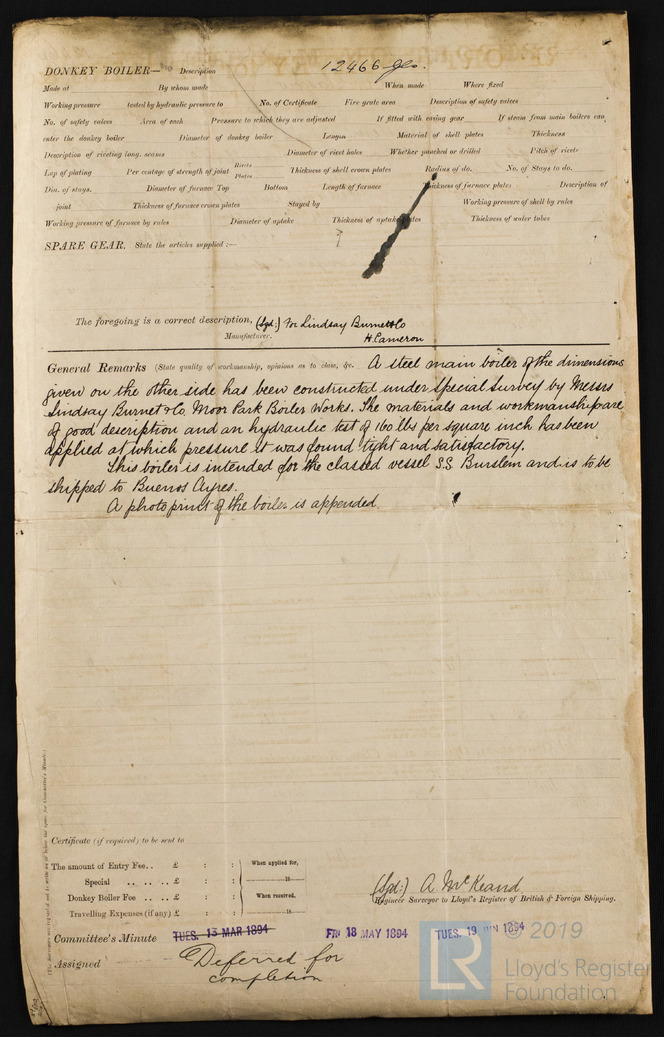 12466 Gls.
DONKEY BOILER— No. Description
Made at By whom made When made Where fixed
Working pressure tested by hydraulic pressure to No. of Certificate Fire grate area Description of safety valves
No. of safety valves Area of each Pressure to which they are adjusted If fitted with easing gear If steam from main boilers can
enter the donkey boiler Diameter of donkey boiler Length Material of shell plates Thickness
Description of riveting long. seams Diameter of rivet holes Whether punched or drilled Pitch of rivets
Lap of plating Per centage of strength of joint Rivets Plates Thickness of shell crown plates Radius of do. No. of Stays to do.
Dia. of stays. Diameter of furnace Top Bottom Length of furnace Thickness of furnace plates Description of
joint Thickness of furnace crown plates Stayed by Working pressure of shell by rules
Working pressure of furnace by rules Diameter of uptake Thickness of uptake plates Thickness of water tubes
SPARE GEAR. State the articles supplied :—
The foregoing is a correct description, (Sgd:) For Lindsay Burnet & Co
Manufacturer. H. Cameron
General Remarks (State quality of workmanship, opinions as to class, &c. A steel main boiler of the dimensions
given on the other side has been constructed under special survey by Messrs
Lindsay Burnet & Co Moor Park Boiler Works. The materials and workmanship are
of good description and an hydraulic test of 160 lbs per square inch has been
applied at which pressure it was found tight and satisfactory.
This boiler is intended for the classed vessel S.S Burslem and is to be
shipped to Buenos Ayres.
A photo print of the boiler is appended.
Certificate (if required) to be sent to
The amount of Entry Fee.. £ : : When applied for,
Special .. .. .. £ : : 18
Donkey Boiler Fee .. .. £ : : When received,
Travelling Expenses (if any) £ : : 18
(Sgd:) A. McKeand
Engineer Surveyor to Lloyd's Register of British & Foreign Shipping.
Committee's Minute TUES. 13 MAR 1894 FRI 18 MAY 1894 TUES. 19 JUN 1894
Assigned Deferred for
completion
© 2019
LR
Lloyd's Register
Foundation